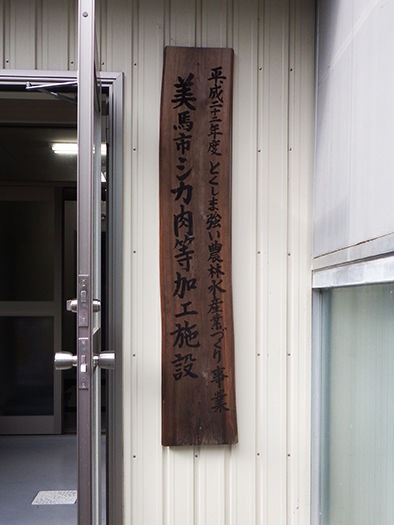 平成二十三年度 とくしま強い農林水産業づくり事業
美馬市シカ肉等加工施設